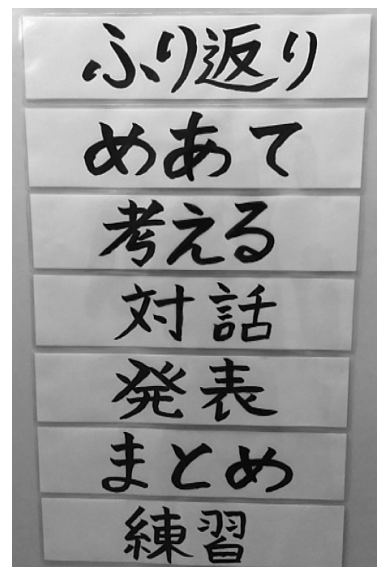 ふり返り
めあて
考える
対話
発表
まとめ
練習